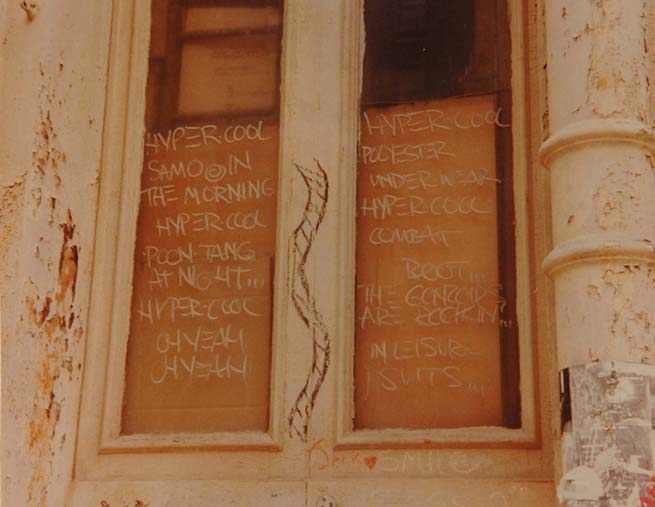 HYPER-COOL
SAMO© IN
THE MORNING
HYPER COOL
POON-TANG
AT NIGHT...
HYPER-COOL
OH YEAH
OH YEAH
HYPER-COOL
POLYESTER
UNDERWEAR
HYPER COOL
COMBAT
BOOT...
THE GONZOIDS
ARE ROCKIN'..
IN LEISURE
SUITS...
SMILE